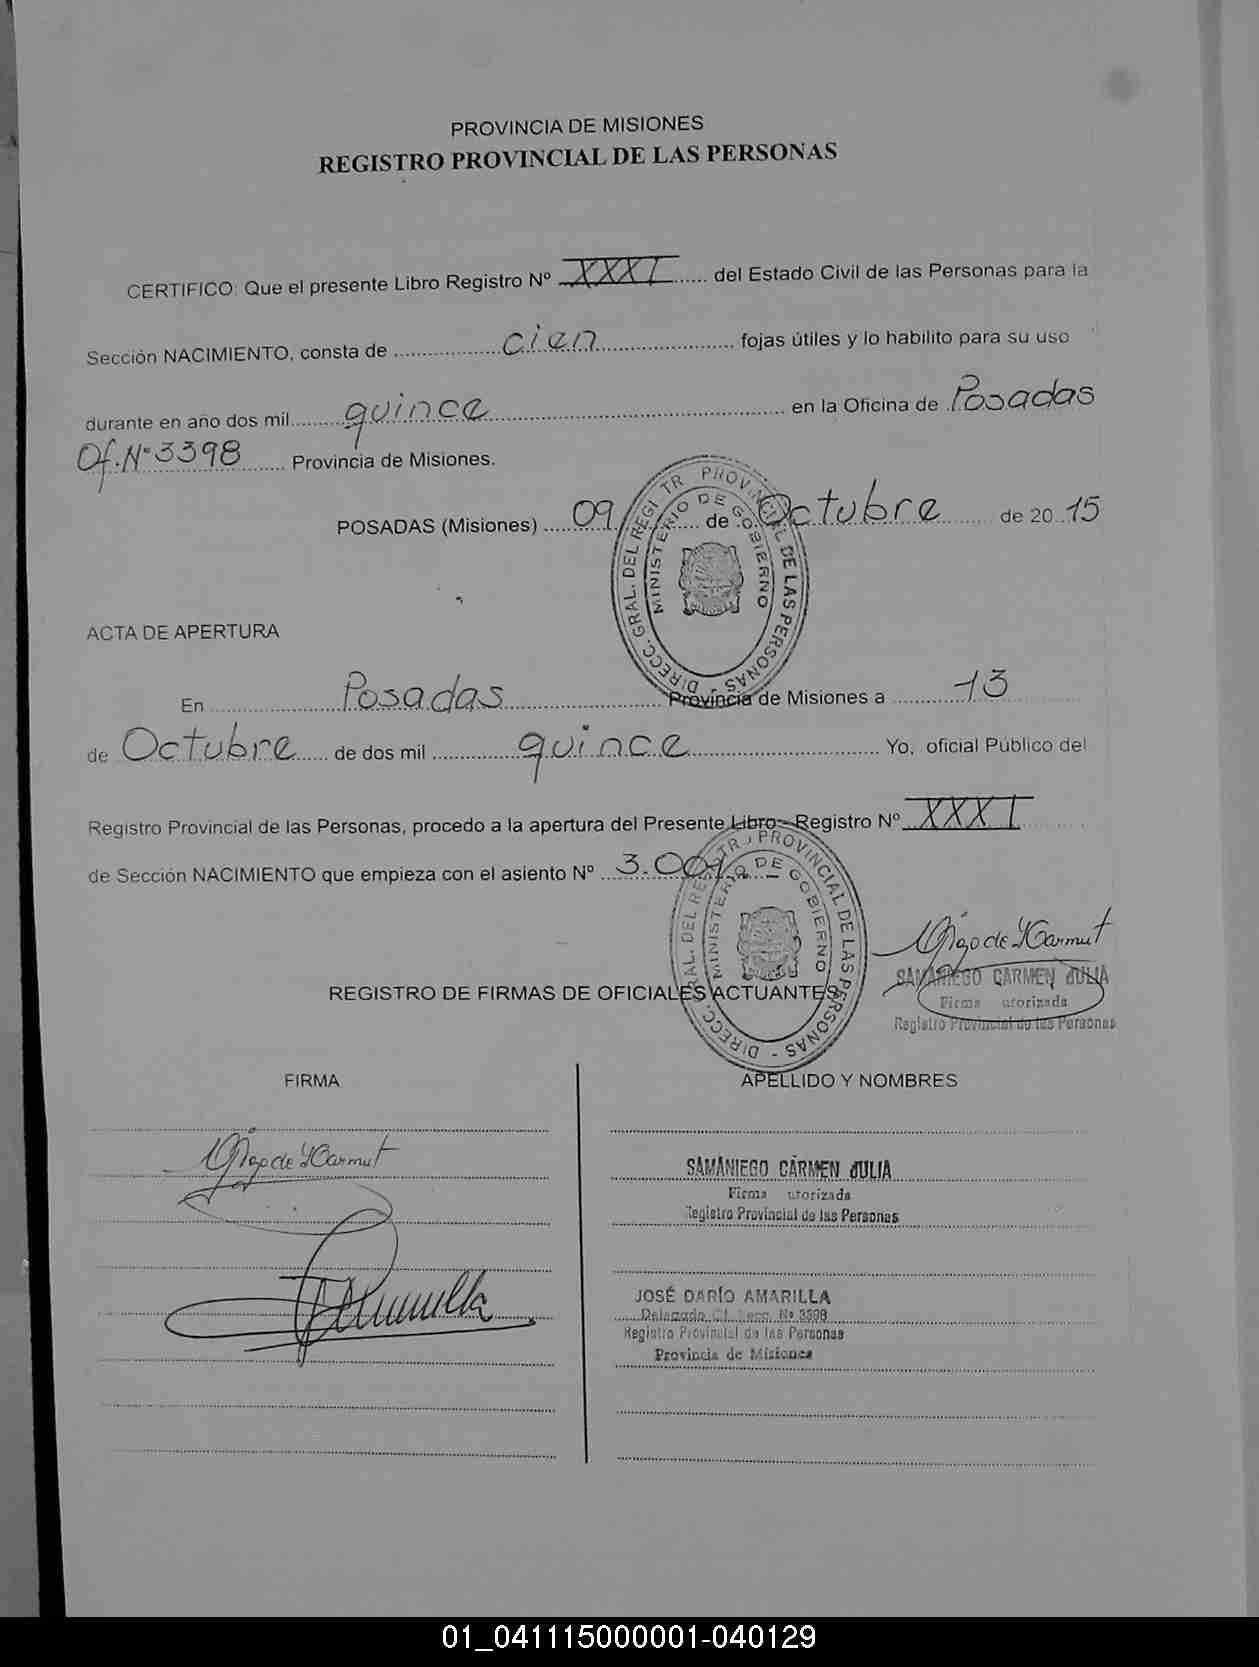 PROVINCIA DE MISIONES
REGISTRO PROVINCIAL DE LAS PERSONAS
CERTIFICO: Que el presente Libro Registro Nº XXXI del Estado Civil de las Personas para la
Sección NACIMIENTO, consta de cien fojas útiles y lo habilito para su uso
durante en año dos mil quince en la Oficina de Posadas
Of. Nº 3398 Provincia de Misiones.
POSADAS (Misiones) 09 de Octubre de 20 15
DIRECC. GRAL. DEL REGISTR. PROVINCIAL DE LAS PERSONAS
MINISTERIO DE GOBIERNO
ACTA DE APERTURA
En Posadas Provincia de Misiones a 13
de Octubre de dos mil quince Yo, oficial Público del
Registro Provincial de las Personas, procedo a la apertura del Presente Libro Registro Nº XXXI
de Sección NACIMIENTO que empieza con el asiento Nº 3.001
DIRECC. GRAL. DEL REGISTR. PROVINCIAL DE LAS PERSONAS
MINISTERIO DE GOBIERNO
SAMANIEGO CARMEN JULIA
Firma utorizada
Registro Provincial de las Personas
REGISTRO DE FIRMAS DE OFICIALES ACTUANTES
FIRMA APELLIDO Y NOMBRES
SAMANIEGO CARMEN JULIA
Firma utorizada
Registro Provincial de las Personas
JOSÉ DARÍO AMARILLA
Delegado Nº 3398
Registro Provincial de las Personas
Provincia de Misiones
01_041115000001-040129